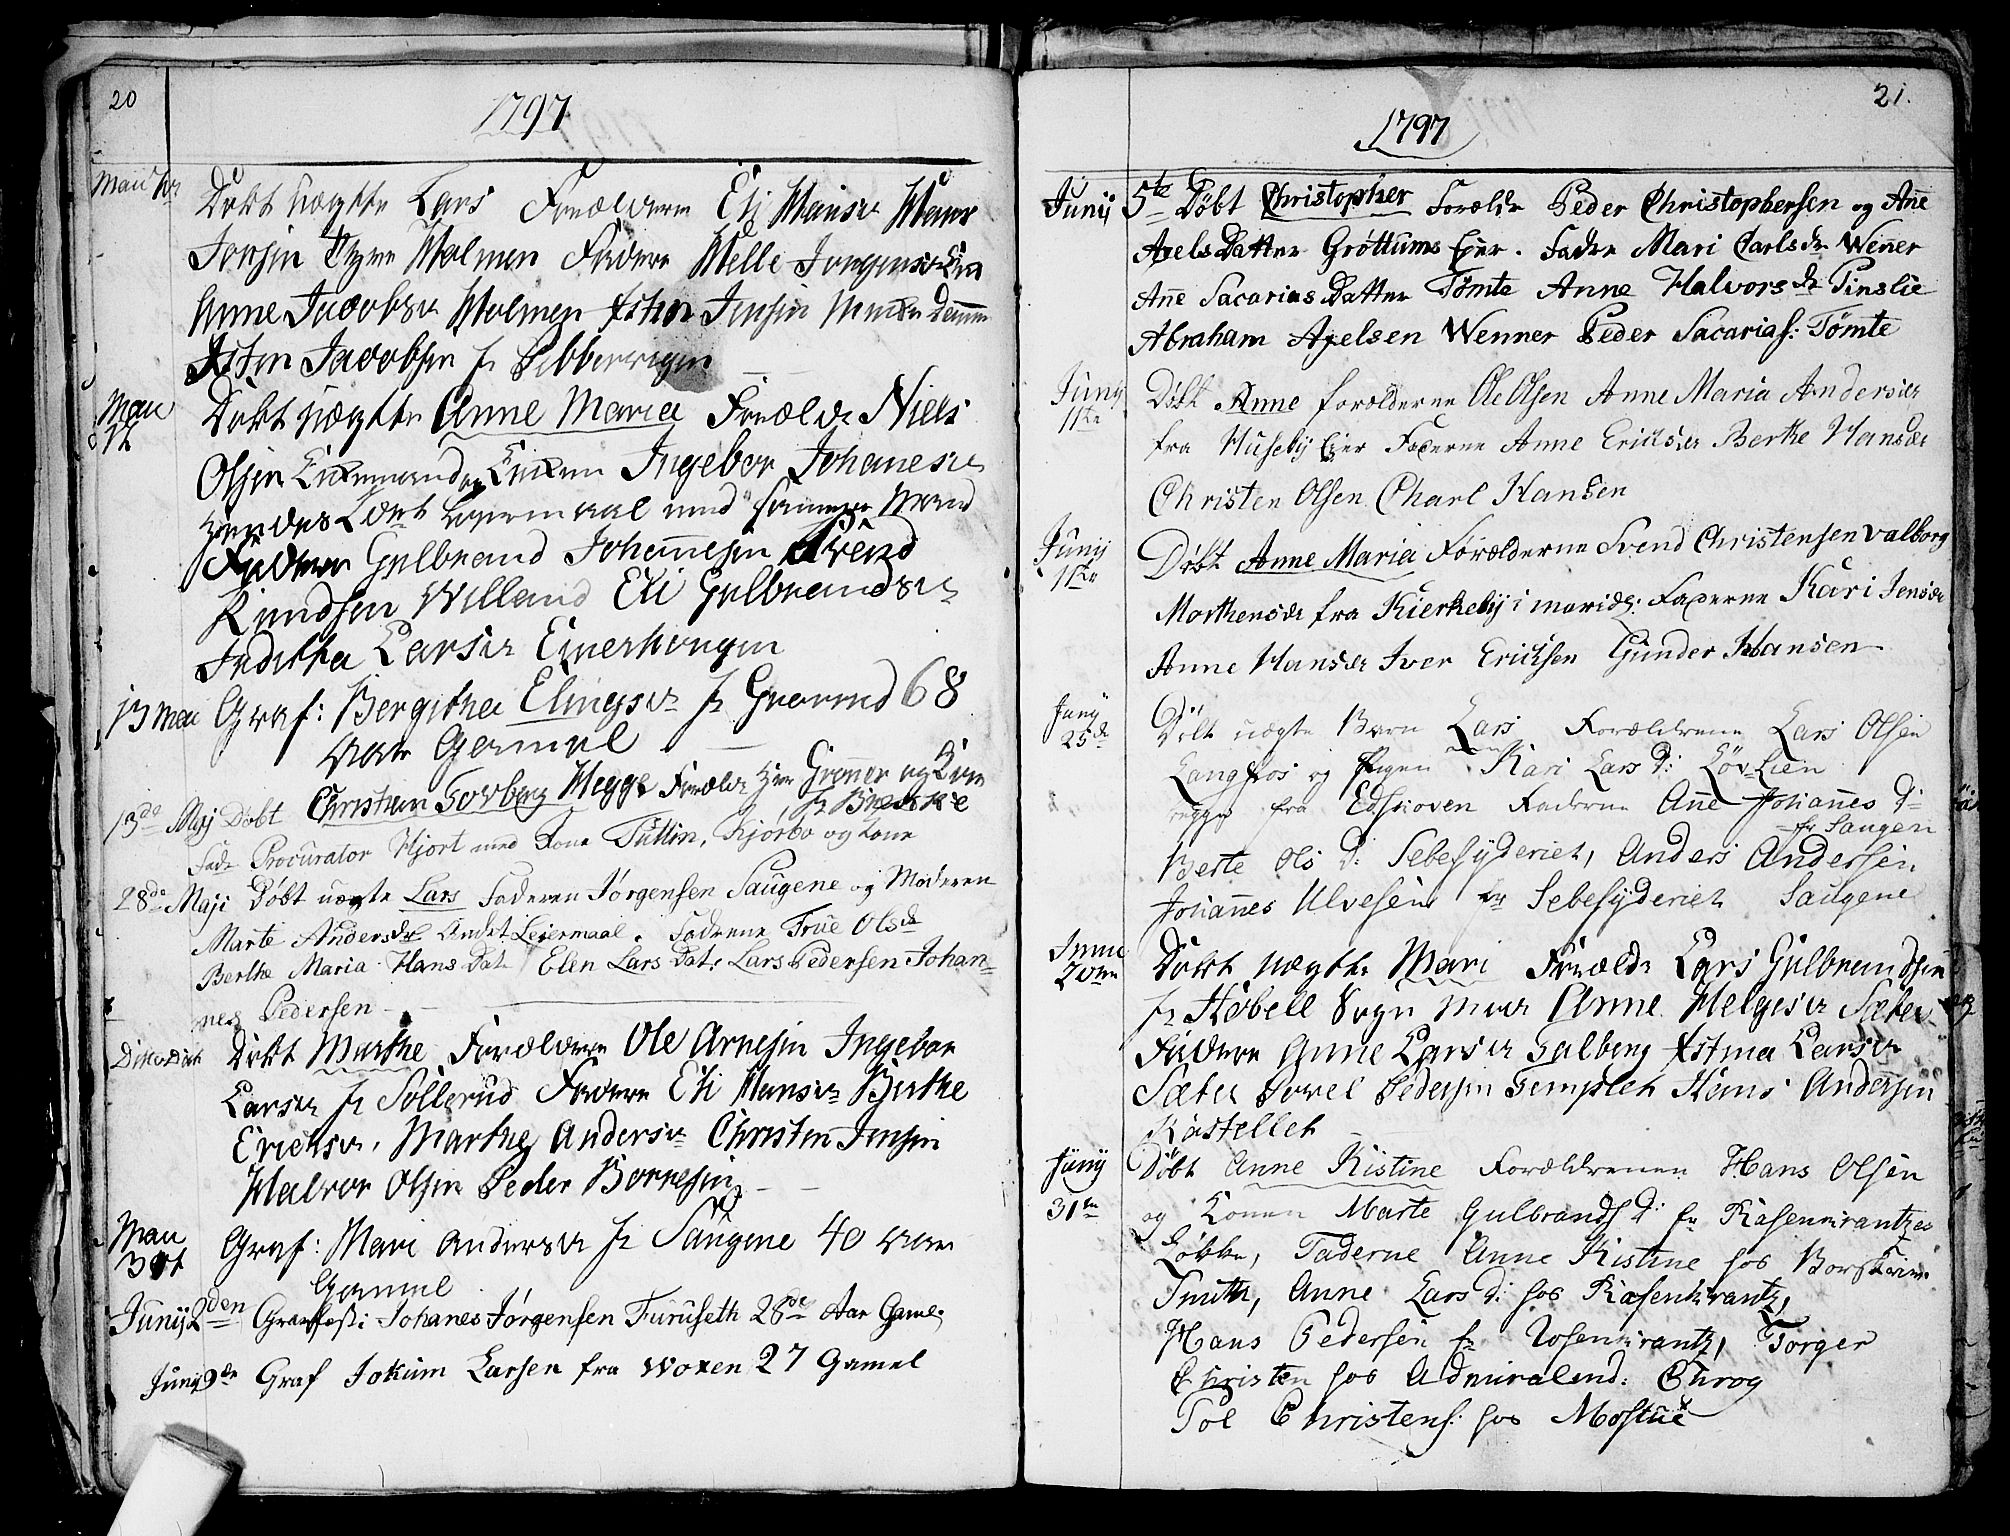 20
1797
Døbt uægte Lars Forældrene Eli Hansd
Jensen Holmen Faderne Helle
Anne Jacobsd Holmen Jensen
Jacobsen fr
Maii
Døbt uægte Anne Maria Foreldr Niels
Olsen Enkemand og Enken Ingebor Johanesd
hendes Leiermaal med samme Mand
Faderne Gulbrand Johannesen Svend
Knudsen Willand Eli Gulbrandsd
Larsd
13 Maii Graf: Bergithe Elingsd fr 68
Aar Gammel
13de Maj Døbt Christian Hegge Foreldr Herr Grøner og Kone
fr Brække
Fadr Procurator Hjort med Kone Tullin, Kjørbo og Kone
28de Maji Døbt uægte Lars Faderen Jørgensen Saugene og Moderen
Marte Andersdr Andet Leiermaal. Fadrene True Olsdr
Berthe Maria Hans Dat: Elen Lars Dat: Lars Pedersen Johan=
nes Pedersen
Dito Dato Døbt Marthe Forældrene Ole Arnesen Ingebor
Larsd fr Sollerud Faderne Eli Hansd Birthe
Ericksd, Marthe Andersd Christen Jensen
Halvor Olsen Peder Borresen
Maii Graf: Mari Andersd fr Saugene 40 Aar
Gammel
Junij 2den Graffæst: Johanes Jørgensen Furuseth 28de Aar Gamel
Junij 9de Graf Jokum Larsen fra Woxen 27 Gamel
21.
1797
Junij 5te Døbt Christopher Foreldr Peder Christophersen og Anne
Axels Datter Grøttums Eier. Fadre Mari Carlsdr Wenner
Ane Sacarias Datter Tømte Anne Halvorsdr Pinslie
Abraham Axelsen Wenner Peder Sacarias: Tømte
Junij
11te
Døbt Anne forælderne Ole Olsen Anne Maria Andersdr
fra Huseby Eier Faderne Anne Ericksdr Berthe Hansdr
Christen Olsen Charl Hansen
Junij
11te
Døbt Anne Maria Forælderne Svend Christensen Valborg
Morthensdr fra Kierkeby i marids: Faderne Kari Jensdr
Anne Hansdr Iver Ericksen Gunder Hansen
Junij
25de
Døbt uægte Barn Lars Forældrene Lars Olsen
Langfos og Pigen Kari Lars D: Løvlien
begge fra Edskoven Faderne Anne Johannes D:
fr Saugen
Berte Ols D: Anders Andersen
Johannes Ulvesen fr Saugene
Døbt uægte Mari Foreldr Lars Gulbrandsen
fr Høbell Sogn Anne Helgesd Sæter
Faderne Anne Larsd Larsd
Sæter Povel Pedersen Templet Hans Andersen
Kastellet
Junij
31te
Døbt Anne Kistine Forældrenne Hans Olsen
og Konen Marte Gulbrands D: fr Rosenkrantzes
Løkke, Faderne Anne Kistine hos
Smith, Anne Lars D: hos Rosenkrantz,
Hans Pedersen fr Rosenkrantz, Torger
Christen hos Admiralend: Chrog
Pol Christens: hos Mostue